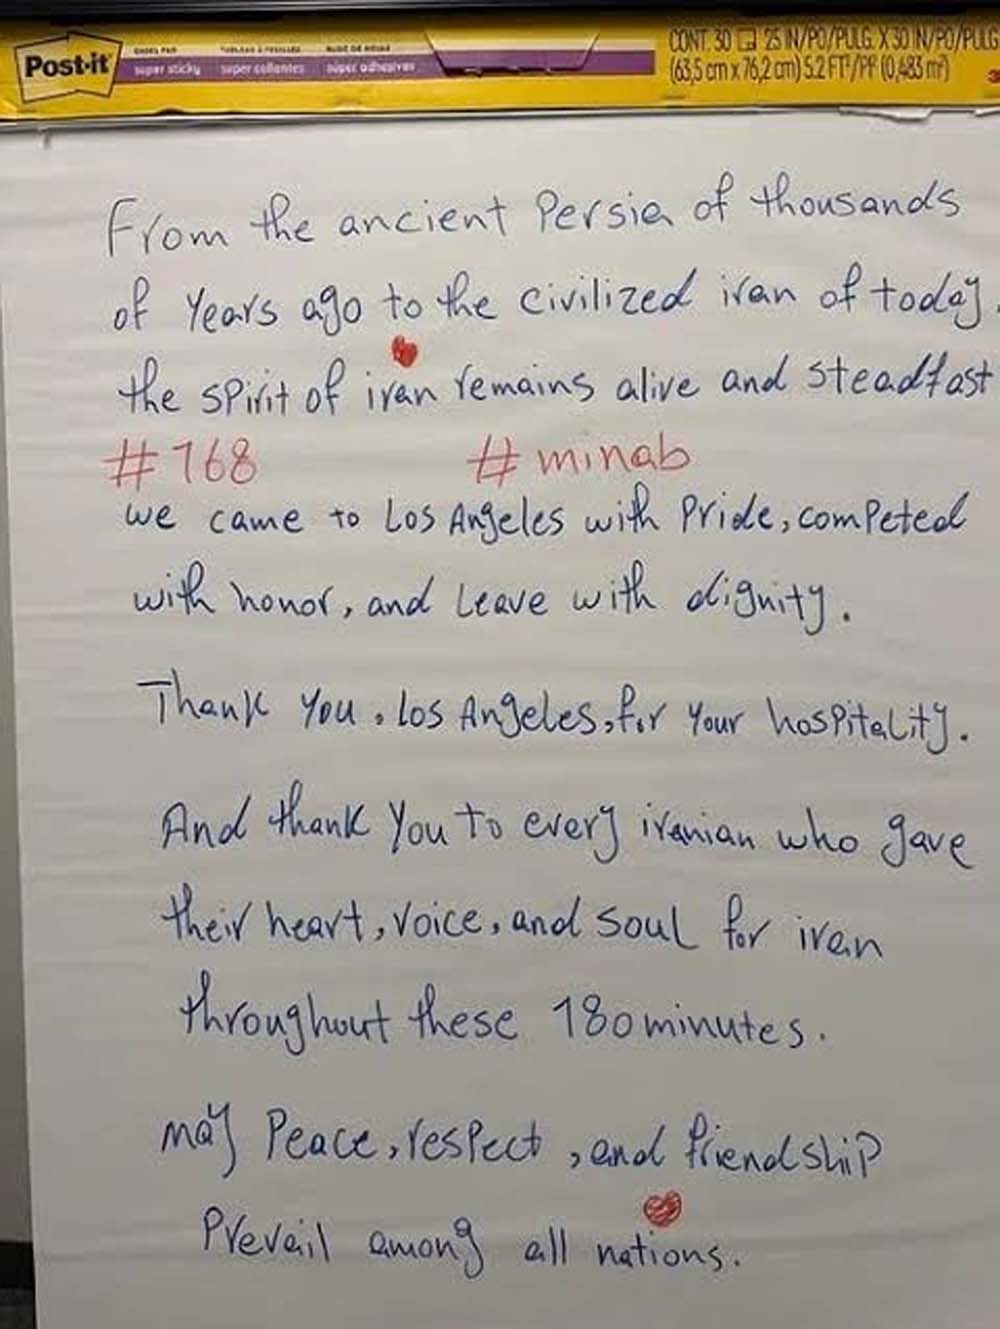 Post-it
EASEL PAD TABLEAU À FEUILLES BLOC DE HOJAS
super sticky super collantes súper adhesivas
CONT. 30 25 IN/PO/PULG. X 30 IN/PO/PULG
(63,5 cm x 76,2 cm) 5.2 FT²/PI² (0,483 m²)
From the ancient Persia of thousands
of Years ago to the civilized iran of today.
the spirit of iran remains alive and steadfast
#168 #minab
we came to Los Angeles with Pride, competed
with honor, and Leave with dignity.
Thank You, Los Angeles, for Your hospitality.
And thank You to every iranian who gave
their heart, voice, and soul for iran
throughout these 180 minutes.
may Peace, respect, and friendship
Prevail among all nations.